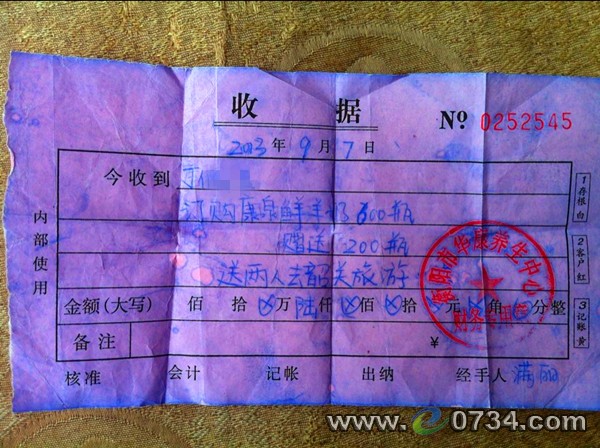 收 据
Nº 0252545
2003年9月7日
今收到
订购康泉鲜羊奶600瓶
赠送200瓶
送两人去韶关旅游
金额(大写) 佰 拾 万 陆仟 佰 拾 元 角 分整
备注 ¥
核准 会计 记帐 出纳 经手人 满阳
内部使用
1存根白
2客户红
3记账黄
衡阳市华康养生中心
财务专用
www.e0734.com